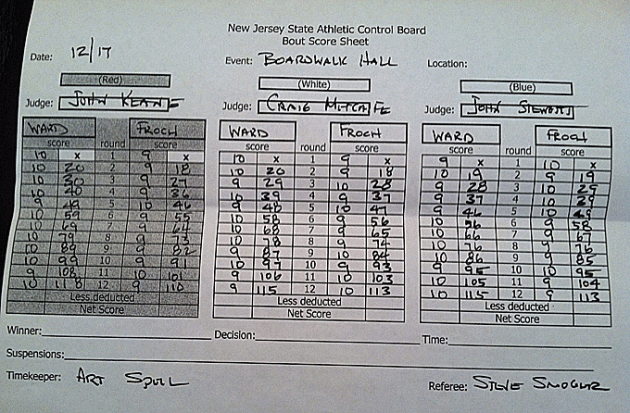 New Jersey State Athletic Control Board
Bout Score Sheet
Date: 12/17 Event: BOARDWALK HALL Location:
(Red) (White) (Blue)
Judge: JOHN KEANE Judge: CRAIG METCALFE Judge: JOHN STEWART
WARD FROCH WARD FROCH WARD FROCH
score round score score round score score round score
10 x 1 9 x 10 x 1 9 x 9 x 1 10 x
10 20 2 9 18 10 20 2 9 18 10 19 2 9 19
10 30 3 9 27 9 29 3 10 28 9 28 3 10 29
10 40 4 9 36 10 39 4 9 37 9 37 4 10 39
9 49 5 10 46 9 48 5 10 47 9 46 5 10 49
10 59 6 9 55 10 58 6 9 56 10 56 6 9 58
10 69 7 9 64 10 68 7 9 65 10 66 7 9 67
10 79 8 9 73 10 78 8 9 74 10 76 8 9 76
10 89 9 9 82 9 87 9 10 84 10 86 9 9 85
10 99 10 9 91 10 97 10 9 93 9 95 10 10 95
9 108 11 10 101 9 106 11 10 103 10 105 11 9 104
10 118 12 9 110 9 115 12 10 113 10 115 12 9 113
Less deducted Less deducted Less deducted
Net Score Net Score Net Score
Winner: Decision: Time:
Suspensions:
Timekeeper: ART SPULL Referee: STEVE SMOGER